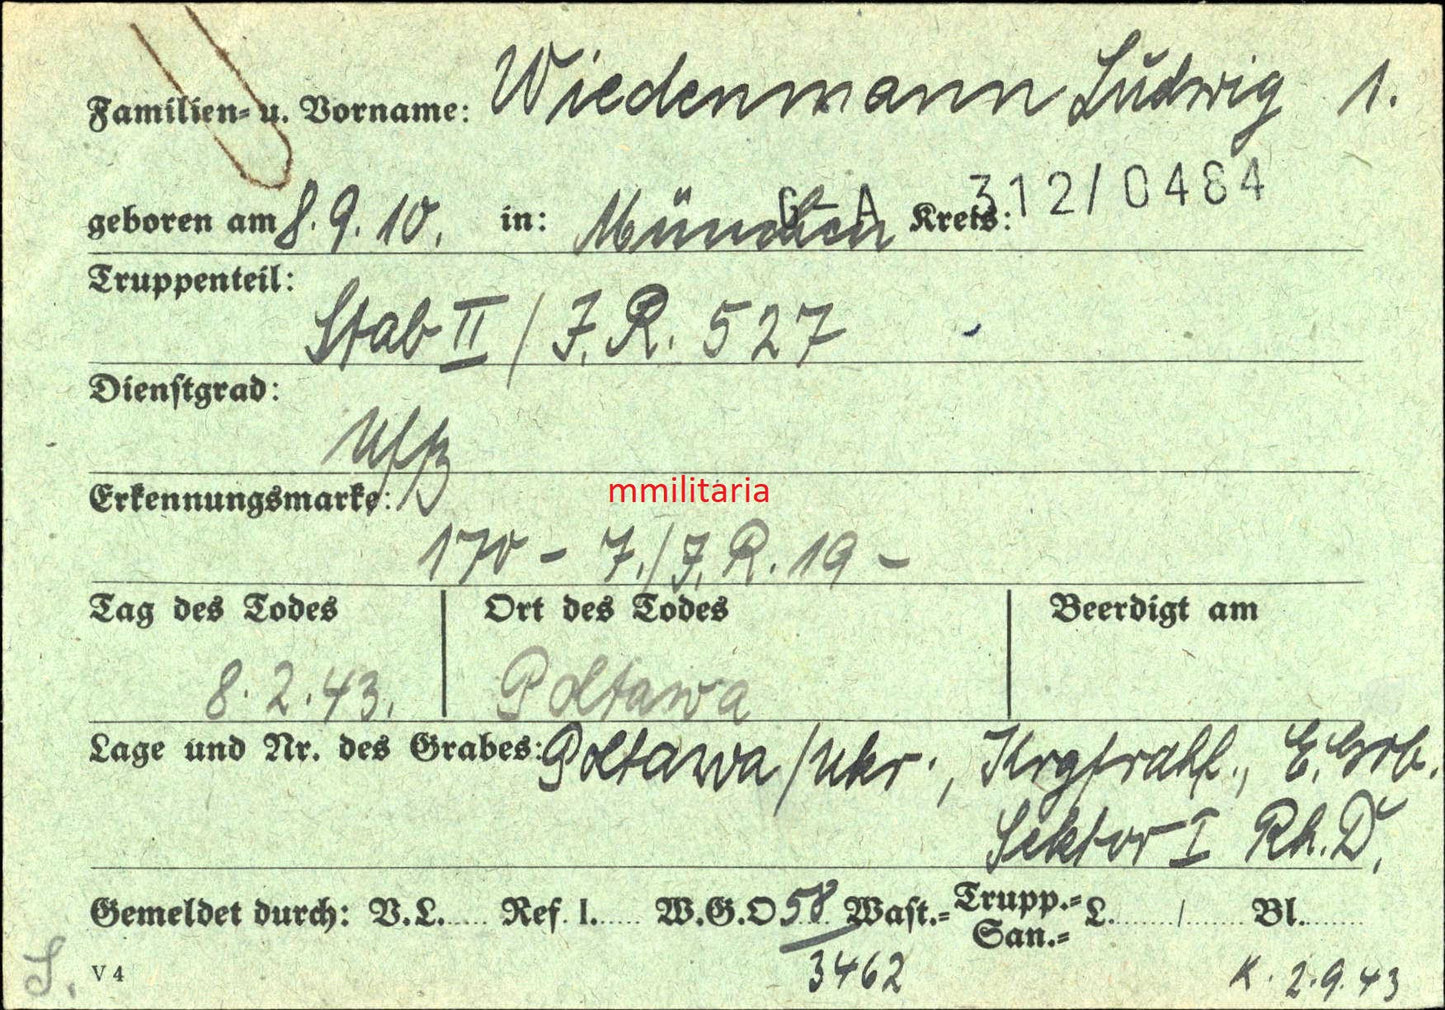 Familien- u. Vorname: Wiedenmann Ludwig 1.
geboren am 8.9.10. in: München Kreis:
G-A 312/0484
Truppenteil:
Stab II / J.R. 527
Dienstgrad:
Uffz
Erkennungsmarke:
mmilitaria
170 - 7./J.R. 19 -
Tag des Todes Ort des Todes Beerdigt am
8.2.43. Poltawa
Lage und Nr. des Grabes: Poltawa/Ukr., Krgfrdhf., E.Grb.
Sektor I Rh.D.
Gemeldet durch: V.L. Ref. I. W.G.O 58 Wast.= Trupp.= L. / Bl.
San.=
3462
S. V 4 K. 2.9.43